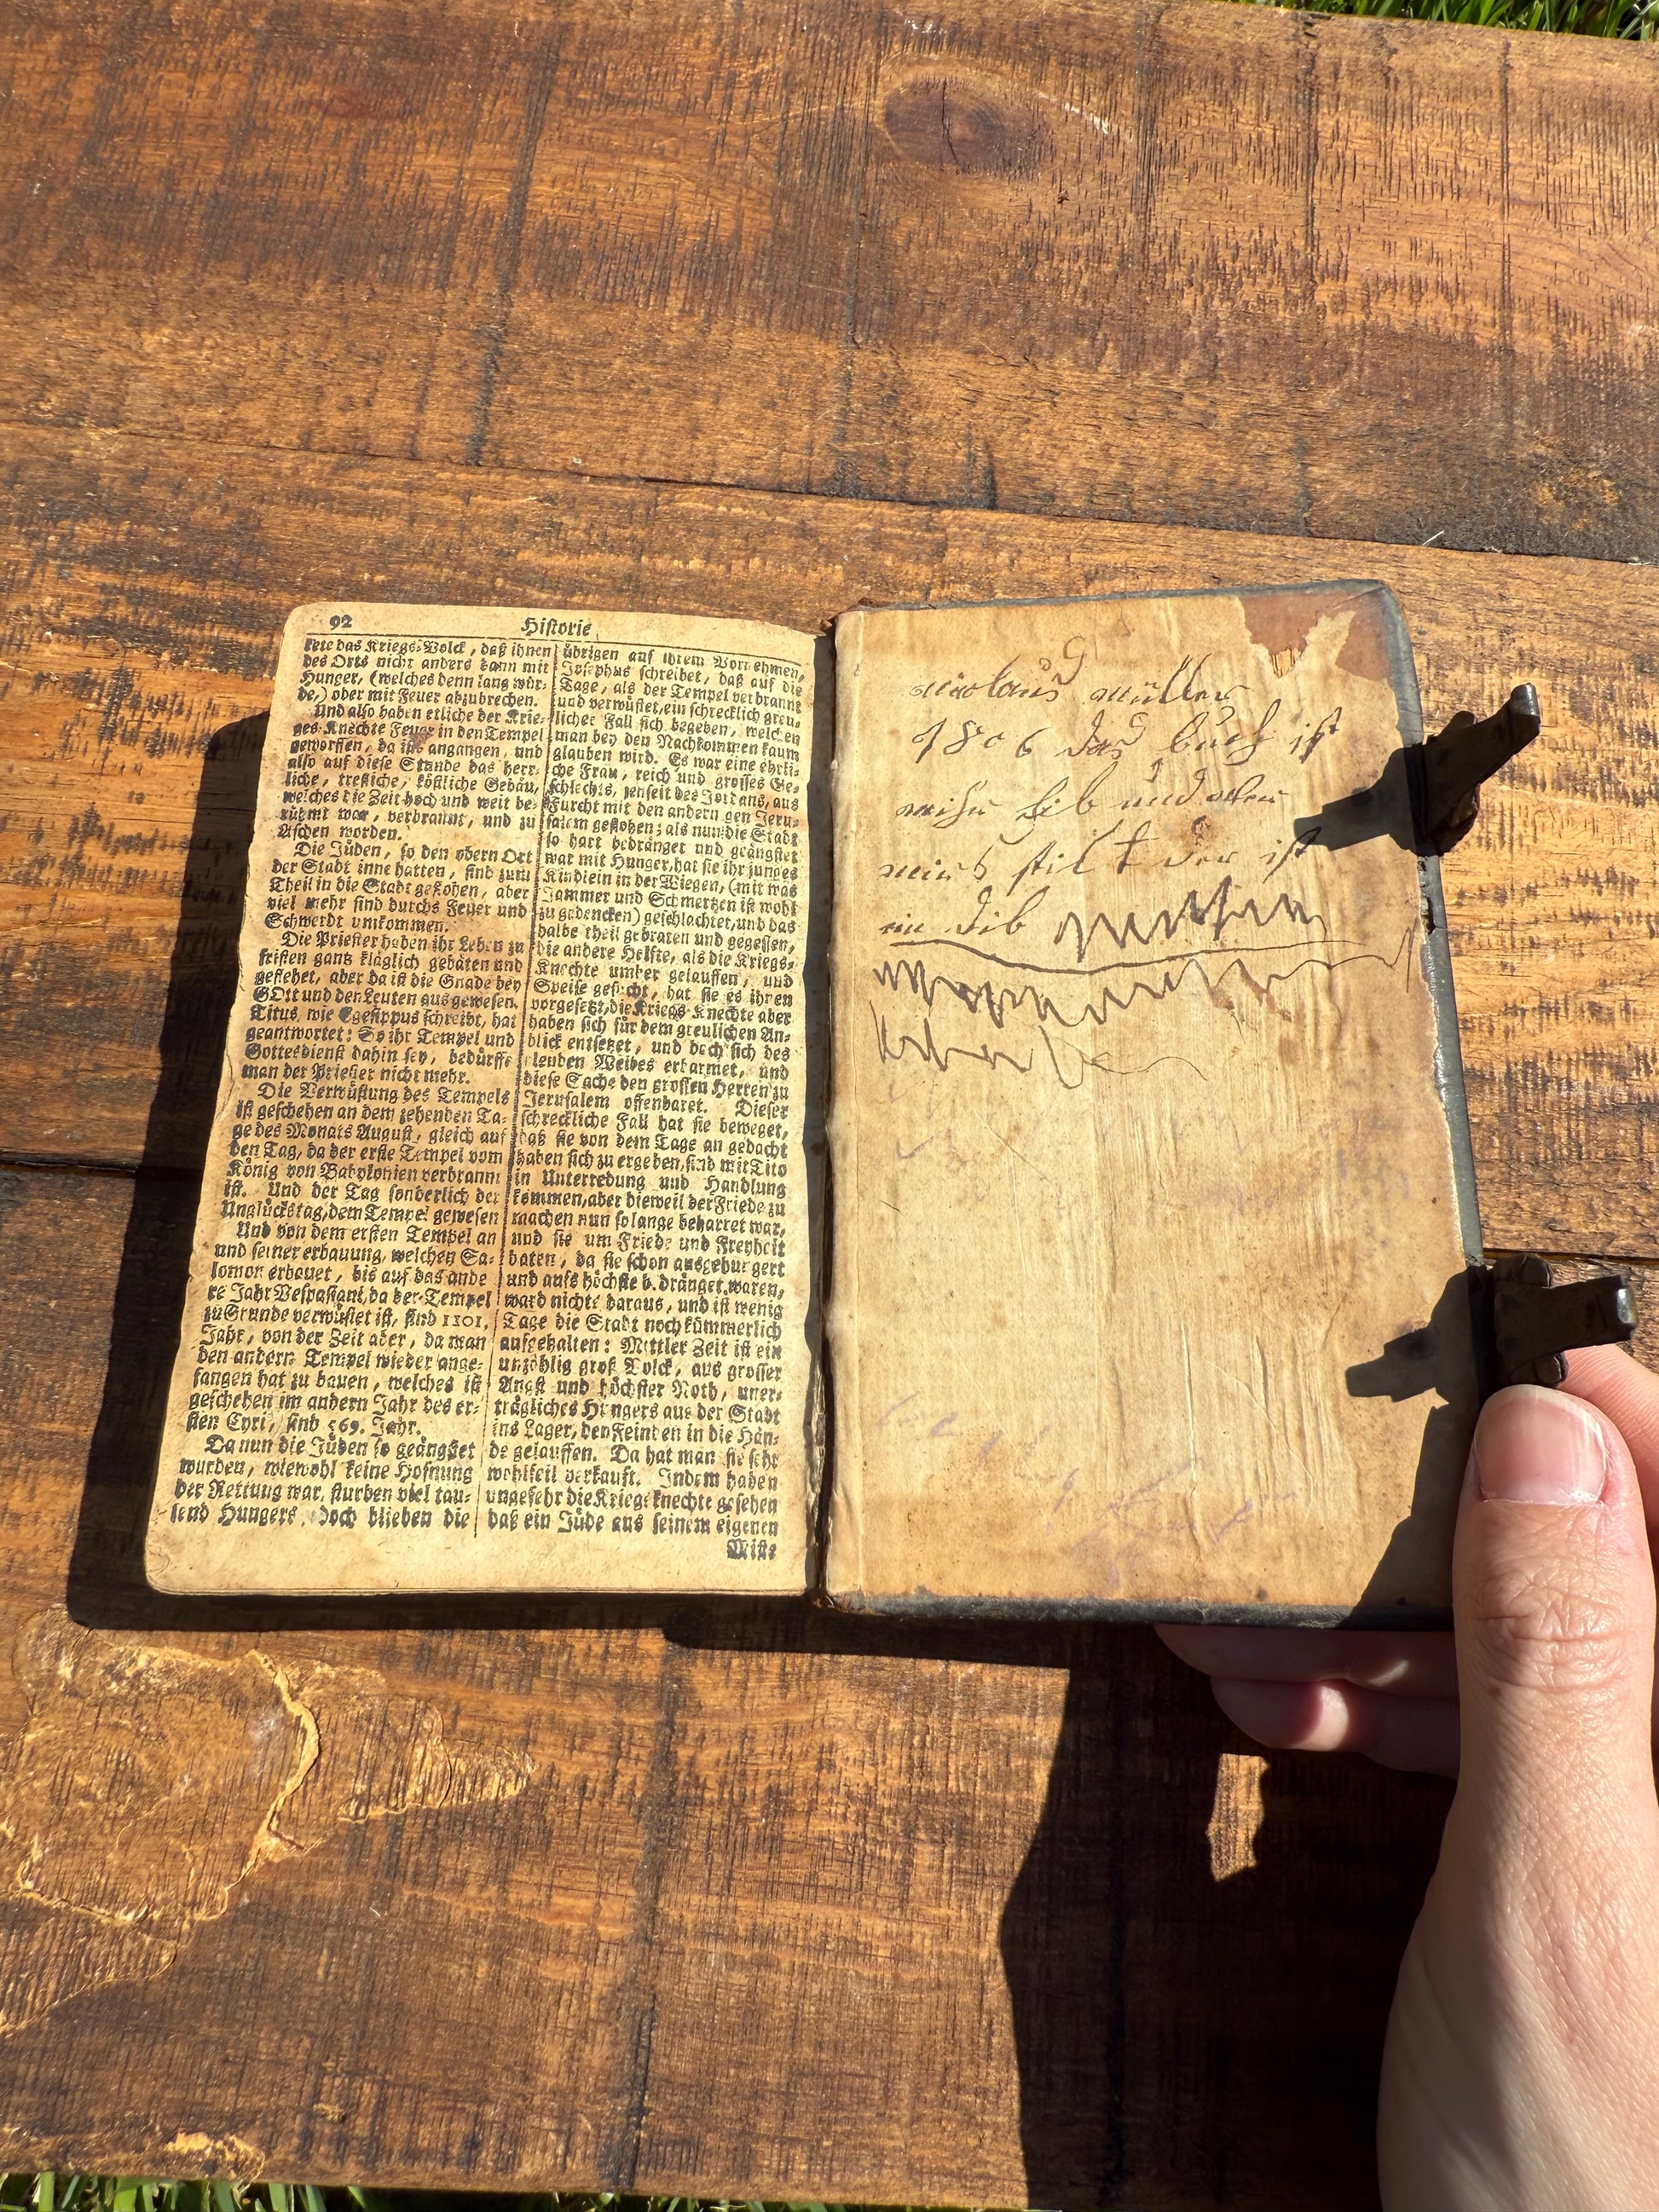 92
Historie
tete das Kriegs-Volck, daß ihnen
des Orts nicht anders kann mit
Hunger, (welches denn lang wür-
de,) oder mit Feuer abzubrechen.
Und also haben etliche der Krie-
ges-Knechte Feuer in den Tempel
geworffen, da ists angangen, und
also auf diese Stunde das herr-
liche, trefliche, köstliche Gebäu,
welches die Zeit hoch und weit be-
rühmt war, verbrannt, und zu
Aschen worden.
Die Jüden, so den obern Ort
der Stadt inne hatten, sind zum
Theil in die Stadt geflohen, aber
viel mehr sind durchs Feuer und
Schwerdt umkommen.
Die Priester haben ihr Leben zu
fristen gantz kläglich gebäten und
geflehet, aber da ist die Gnade bey
GOtt und den Leuten aus gewesen.
Titus, wie Egesippus schreibt, hat
geantwortet: So ihr Tempel und
Gottesdienst dahin sey, bedürffe
man der Priester nicht mehr.
Die Verwüstung des Tempels
ist geschehen an dem zehenden Ta-
ge des Monats August, gleich auf
den Tag, da der erste Tempel vom
König von Babylonien verbrannt
ist. Und der Tag sonderlich der
Unglückstag, dem Tempel gewesen
Und von dem ersten Tempel an
und seiner erbauung, welchen Sa-
lomon erbauet, bis auf das ande
re Jahr Vespasiani, da der Tempel
zu Grunde verwüstet ist, sind 1101.
Jahr, von der Zeit aber, da man
den andern Tempel wieder ange-
fangen hat zu bauen, welches ist
geschehen im andern Jahr des er-
sten Cyri, sind 569. Jahr.
Da nun die Jüden so geängstet
wurden, wiewohl keine Hofnung
der Rettung war, sturben viel tau-
send Hungers, doch blieben die
übrigen auf ihrem Vornehmen,
Josephus schreibet, daß auf die
Tage, als der Tempel verbrannt
und verwüstet, ein schrecklich greu-
licher Fall sich begeben, welchen
man bey den Nachkommen kaum
glauben wird. Es war eine ehrli-
che Frau, reich und grosses Ge-
schlechts, jenseit des Jordans, aus
Furcht mit den andern gen Jeru-
salem geflohen; als nun die Stadt
so hart bedränget und geängstet
war mit Hunger, hat sie ihr junges
Kindlein in der Wiegen, (mit was
Jammer und Schmertzen ist wohl
zu gedencken) geschlachtet, und das
halbe theil gebraten und gegessen,
die andere Helfte, als die Kriegs-
Knechte umher gelauffen, und
Speise gesucht, hat sie es ihnen
vorgesetzt, die Kriegs-Knechte aber
haben sich für dem greulichen An-
blick entsetzet, und doch sich des
elenden Weibes erbarmet, und
diese Sache den grossen Herren zu
Jerusalem offenbaret. Dieser
schreckliche Fall hat sie beweget,
daß sie von dem Tage an gedacht
haben sich zu ergeben, sind mit Tito
in Unterredung und Handlung
kommen, aber dieweil der Friede zu
machen nun so lange beharret war,
und sie um Friede und Freyheit
baten, da sie schon ausgehungert
und aufs höchste bedränget waren,
ward nichts daraus, und ist wenig
Tage die Stadt noch kümmerlich
aufgehalten: Mittler Zeit ist ein
unzählig groß Volck, aus grosser
Angst und höchster Noth, uner-
trägliches Hungers aus der Stadt
ins Lager, den Feinden in die Hän-
de gelauffen. Da hat man sie sehr
wohlfeil verkauft. Indem haben
ungefehr die Kriegsknechte gesehen
daß ein Jüde aus seinem eigenen
Miste
nicolaus müller
1806 das buch ist
mihr lib und wer
mirs stilt der ist
ein dib